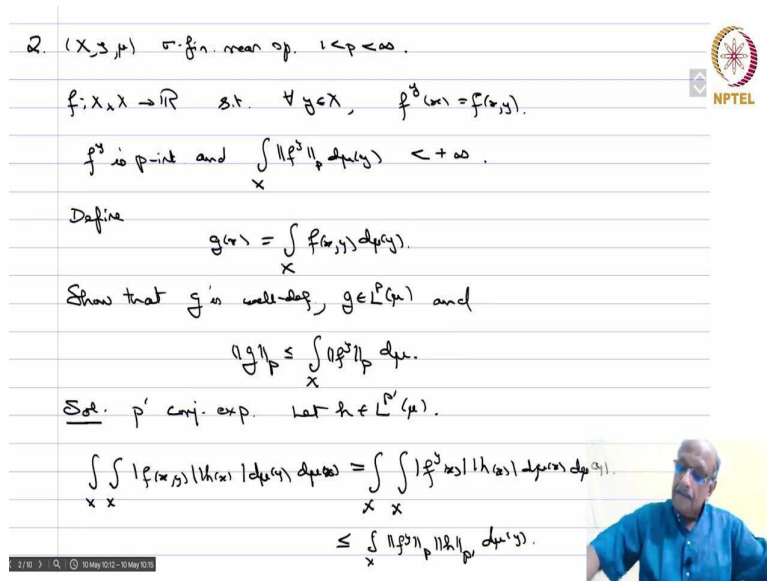 2. (X, S, μ) σ-fin. meas sp. 1<p<∞.
f: X×X → ℝ s.t. ∀ y∈X, f^y(x) = f(x,y).
f^y is p-int and ∫_X ||f^y||_p dμ(y) < +∞.
Define
g(x) = ∫_X f(x,y) dμ(y).
Show that g is well-def, g∈L^p(μ) and
||g||_p ≤ ∫_X ||f^y||_p dμ.
Sol. p' conj. exp. Let h ∈ L^{p'}(μ).
∫_X ∫_X |f(x,y)| |h(x)| dμ(y) dμ(x) = ∫_X ∫_X |f^y(x)| |h(x)| dμ(x) dμ(y).
≤ ∫_X ||f^y||_p ||h||_{p'} dμ(y).
NPTEL
2/10 > 10 May 10:12 – 10 May 10:15